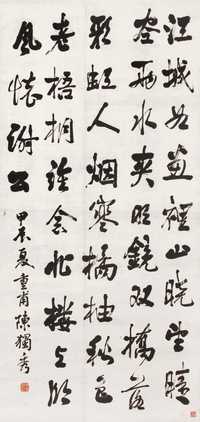 江城如畫裡山曉望晴
空兩水夾明鏡双橋落
彩虹人烟寒橘柚秋色
老梧桐誰念北樓上臨
風懷謝公
甲辰夏重甫陳獨秀